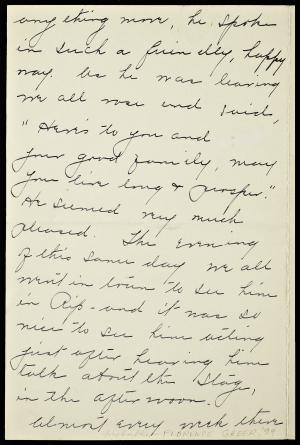 anything more, he spoke
in such a friendly, happy
way. As he was leaving
we all rose and said,
"Here's to you and
your good family, may
you live long & prosper."
He seemed very much
pleased. The evening
of this same day we all
went in town to see him
in Rip - and it was so
nice to see him acting
just after hearing him
talk about the stage,
in the afternoon.
Almost every week there
FLORENCE